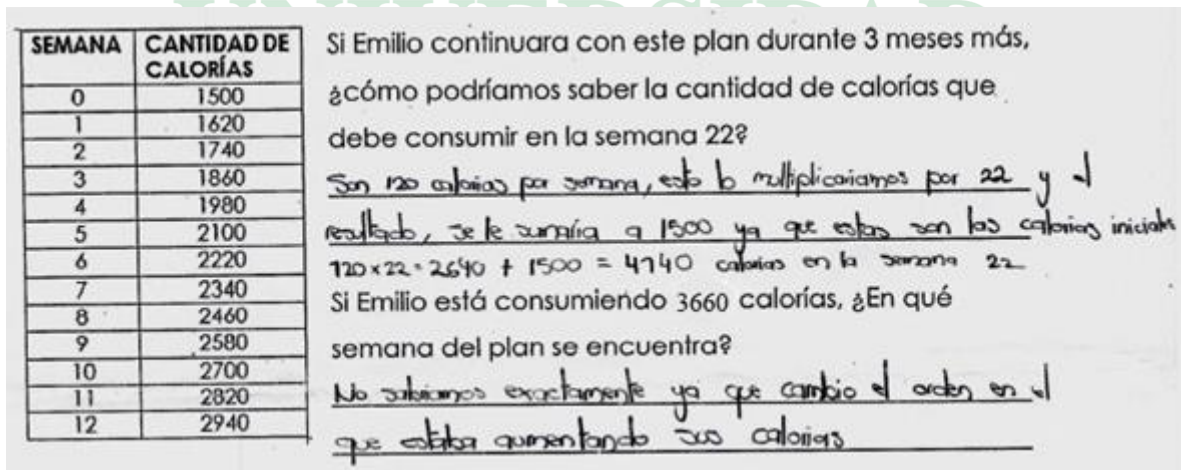 UNIVERSIDAD
SEMANA CANTIDAD DE CALORÍAS
0 1500
1 1620
2 1740
3 1860
4 1980
5 2100
6 2220
7 2340
8 2460
9 2580
10 2700
11 2820
12 2940
Si Emilio continuara con este plan durante 3 meses más,
¿cómo podríamos saber la cantidad de calorías que
debe consumir en la semana 22?
Son 120 calorias por semana, esto lo multiplicariamos por 22 y el
resultado, se le sumaría a 1500 ya que estas son las calorias iniciales
120 x 22 = 2640 + 1500 = 4140 calorias en la semana 22
Si Emilio está consumiendo 3660 calorías, ¿En qué
semana del plan se encuentra?
No sabriamos exactamente ya que cambio el orden en el
que estaba aumentando sus calorias